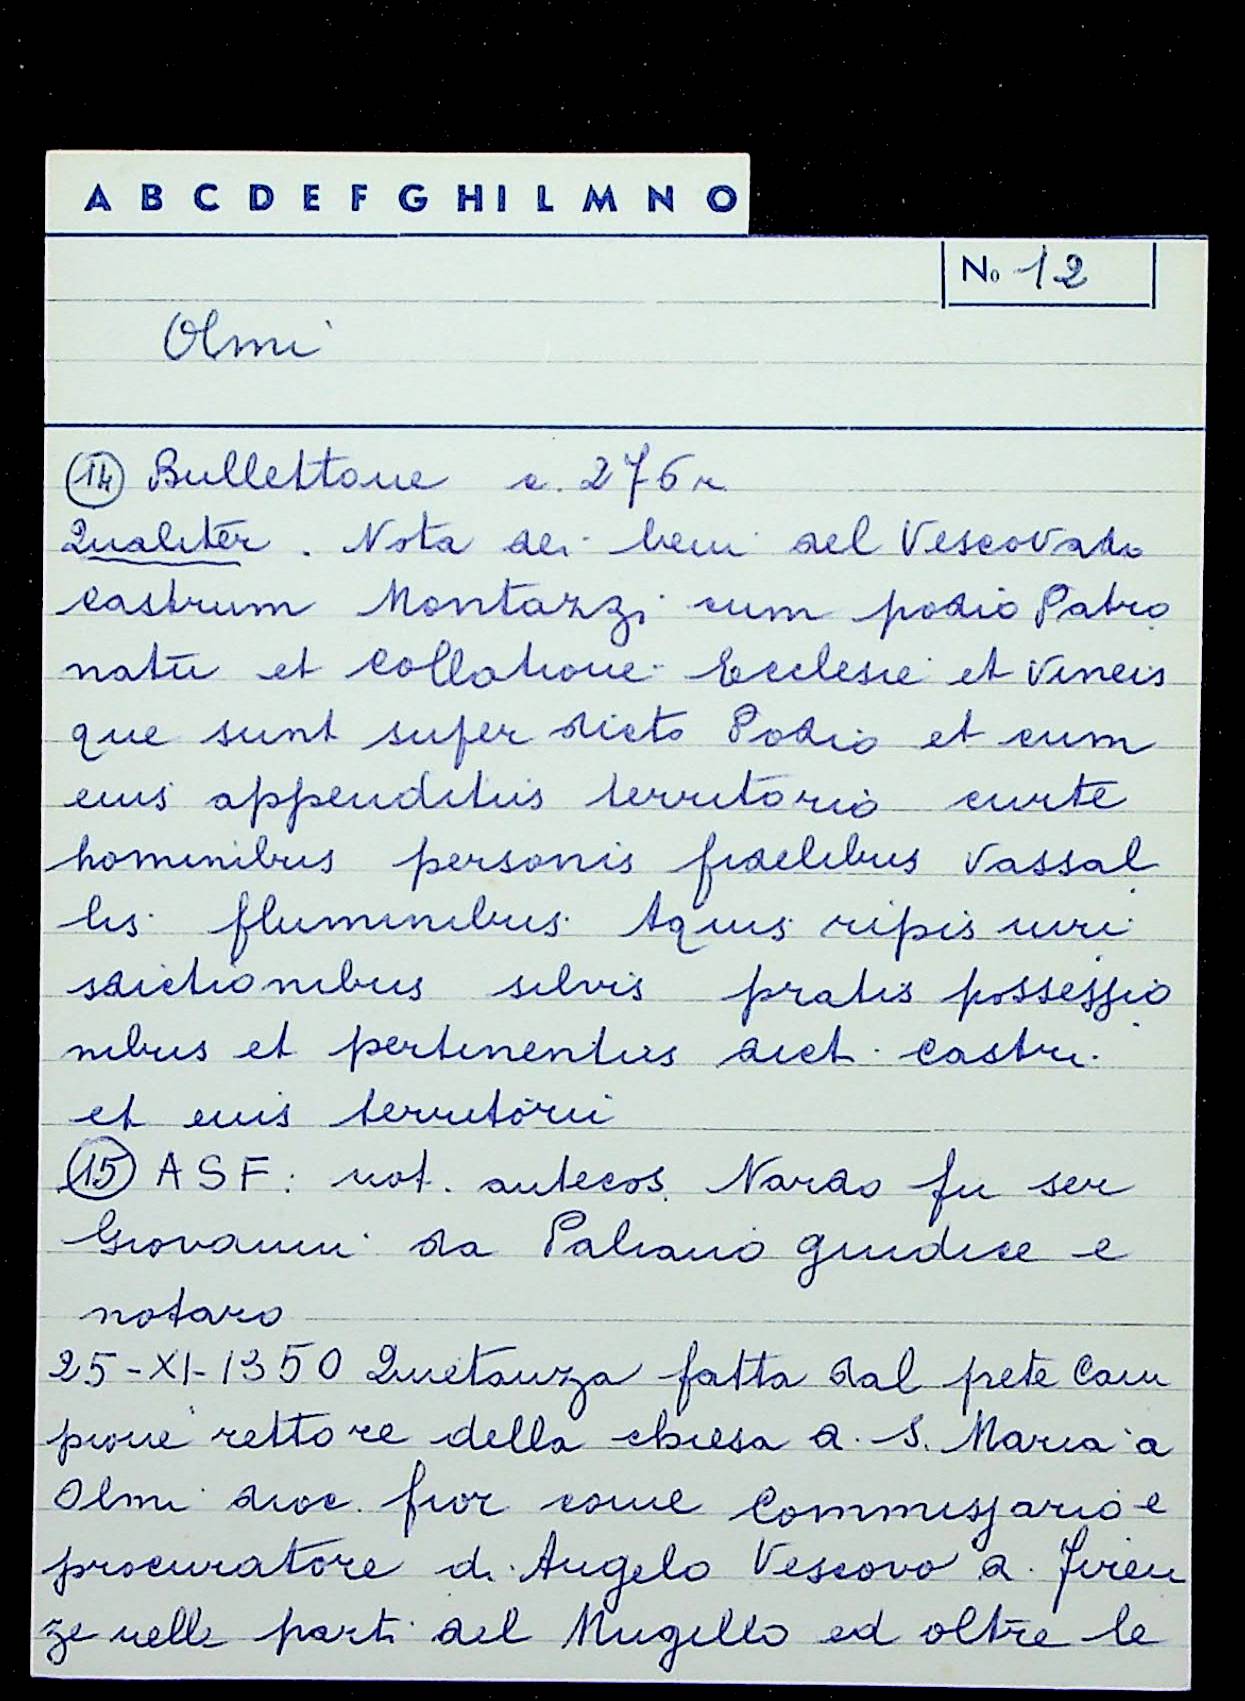 A B C D E F G H I L M N O
No 12
Olmi
14 Bullettone c. 276 r
Qualiter. Nota dei beni del Vescovado
castrum Montazzi cum podio Patro
natu et collatione Ecclesie et Vineis
que sunt super dicto Podio et cum
eius appenditiis territorio curte
hominibus personis fidelibus vassal
lis fluminibus Aquis ripis iuri
sdictionibus silvis pratis possessio
nibus et pertinentiis dict. castri
et euis territorii
15 ASF: not. antecos. Nardo fu ser
Giovanni da Paliano giudice e
notaro
25-XI-1350 Quietanza fatta dal prete Cam
pione rettore della chiesa di S. Maria a
Olmi dioc. fior come Commissario e
procuratore di Angelo Vescovo di Firen
ze nelle parti del Mugello ed oltre le